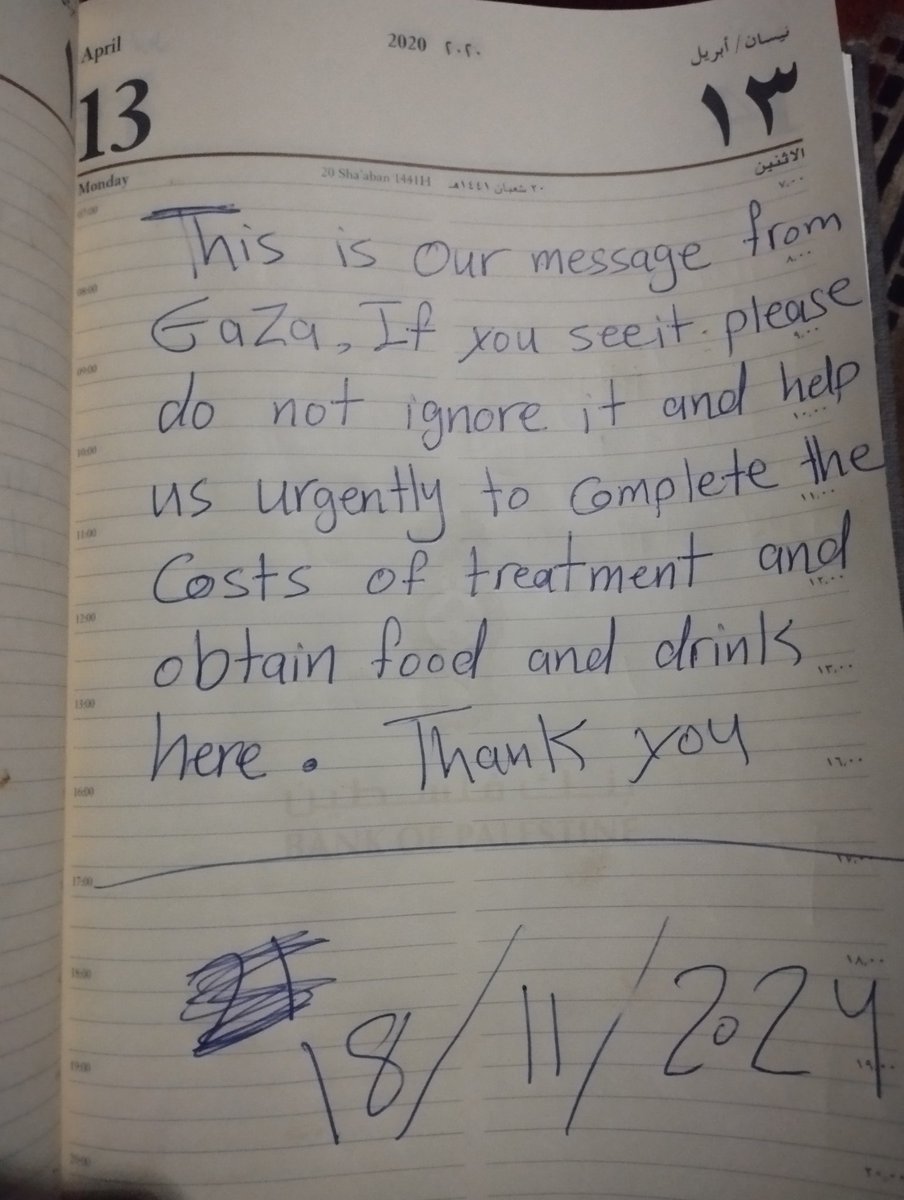 April 2020 ٢٠٢٠ نيسان/أبريل
13 ١٣
Monday 20 Sha'aban 1441H ٢٠ شعبان ١٤٤١هـ الاثنين
07:00 ٧,٠٠
This is our message from
08:00 ٨,٠٠
GaZa, If you see it. please
09:00 ٩,٠٠
do not ignore it and help
10:00 ١٠,٠٠
us urgently to complete the
11:00 ١١,٠٠
Costs of treatment and
12:00 ١٢,٠٠
obtain food and drink
13:00 ١٣,٠٠
here. Thank you
16:00 ١٦,٠٠
BANK OF PALESTINE
17:00 ١٧,٠٠
18:00 ١٨,٠٠
18/11/2024
19:00 ١٩,٠٠
20:00 ٢٠,٠٠